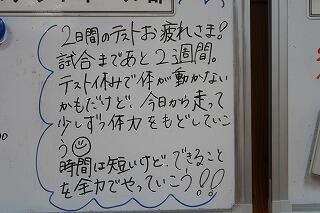 2日間のテストお疲れさま!
試合まであと2週間。
テスト休みで体が動かない
かもだけど、今日から走って
少しずつ体力をもどしていこ
う☺
時間は短いけど、できること
を全力でやっていこう!!